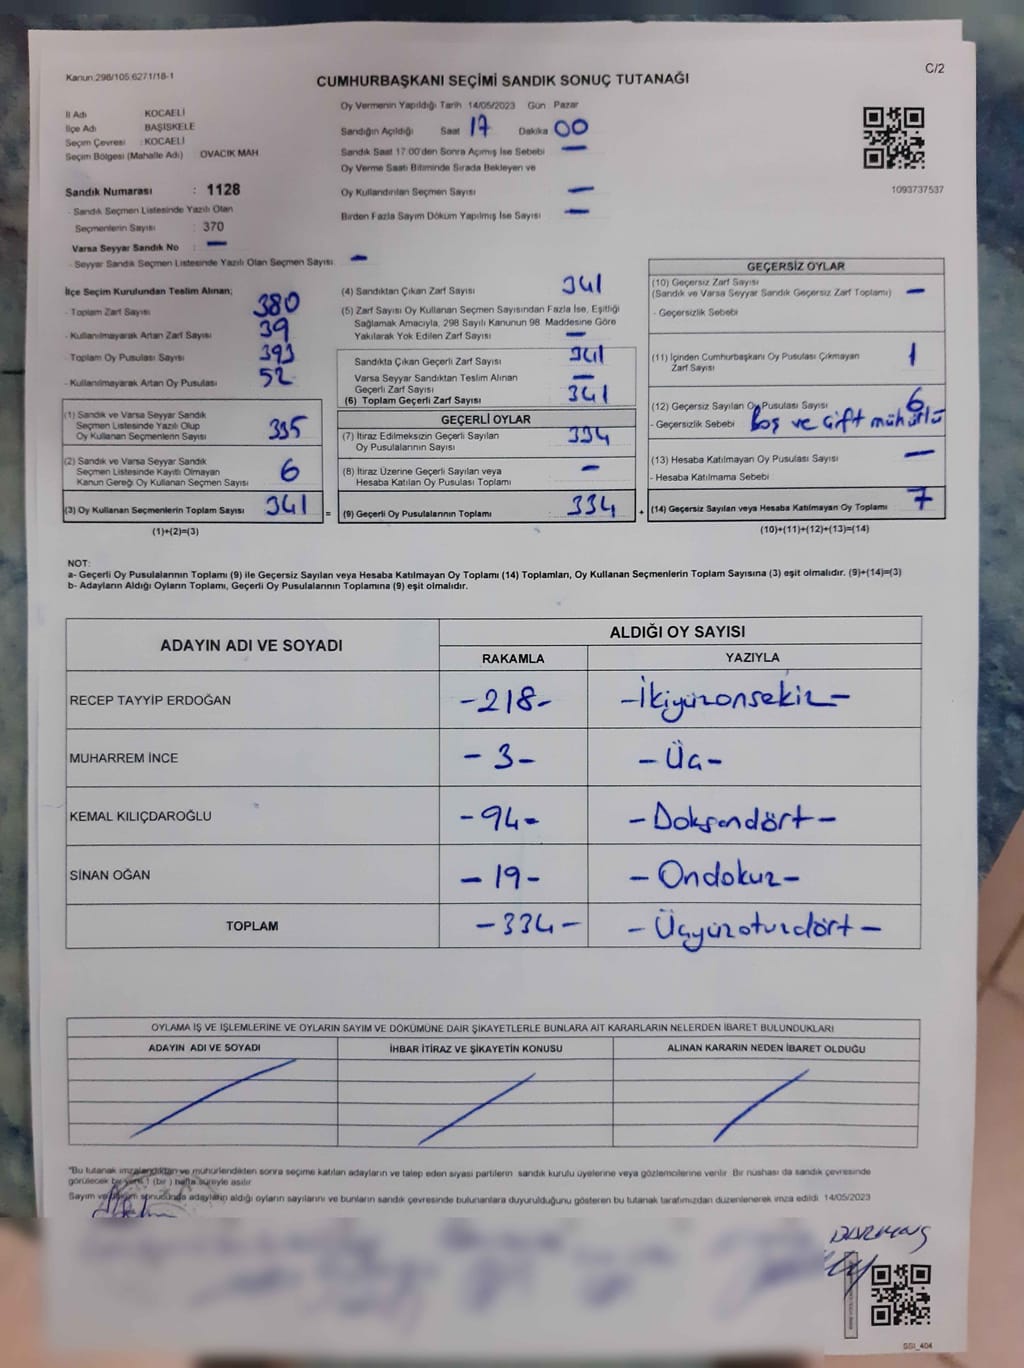 Kanun:298/105,6271/18-1
C/2
CUMHURBAŞKANI SEÇİMİ SANDIK SONUÇ TUTANAĞI
İl Adı KOCAELİ
İlçe Adı BAŞİSKELE
Seçim Çevresi : KOCAELİ
Seçim Bölgesi (Mahalle Adı) OVACIK MAH
Sandık Numarası : 1128
- Sandık Seçmen Listesinde Yazılı Olan
Seçmenlerin Sayısı : 370
Varsa Seyyar Sandık No : —
- Seyyar Sandık Seçmen Listesinde Yazılı Olan Seçmen Sayısı: —
Oy Vermenin Yapıldığı Tarih 14/05/2023 Gün Pazar
Sandığın Açıldığı Saat 17 Dakika 00
Sandık Saat 17:00'den Sonra Açımış İse Sebebi —
Oy Verme Saati Bitiminde Sırada Bekleyen ve
Oy Kullandırılan Seçmen Sayısı —
Birden Fazla Sayım Döküm Yapılmış İse Sayısı —
1093737537
İlçe Seçim Kurulundan Teslim Alınan;
- Toplam Zarf Sayısı 380
- Kullanılmayarak Artan Zarf Sayısı 39
- Toplam Oy Pusulası Sayısı 393
- Kullanılmayarak Artan Oy Pusulası 52
(1) Sandık ve Varsa Seyyar Sandık
Seçmen Listesinde Yazılı Olup
Oy Kullanan Seçmenlerin Sayısı 335
(2) Sandık ve Varsa Seyyar Sandık
Seçmen Listesinde Kayıtlı Olmayan
Kanun Gereği Oy Kullanan Seçmen Sayısı 6
(3) Oy Kullanan Seçmenlerin Toplam Sayısı 341 =
(1)+(2)=(3)
(4) Sandıktan Çıkan Zarf Sayısı 341
(5) Zarf Sayısı Oy Kullanan Seçmen Sayısından Fazla İse, Eşitliği
Sağlamak Amacıyla, 298 Sayılı Kanunun 98. Maddesine Göre
Yakılarak Yok Edilen Zarf Sayısı —
Sandıkta Çıkan Geçerli Zarf Sayısı 341
Varsa Seyyar Sandıktan Teslim Alınan
Geçerli Zarf Sayısı —
(6) Toplam Geçerli Zarf Sayısı 341
GEÇERLİ OYLAR
(7) İtiraz Edilmeksizin Geçerli Sayılan
Oy Pusulalarının Sayısı 334
(8) İtiraz Üzerine Geçerli Sayılan veya
Hesaba Katılan Oy Pusulası Toplamı —
(9) Geçerli Oy Pusulalarının Toplamı 334 +
GEÇERSİZ OYLAR
(10) Geçersiz Zarf Sayısı
(Sandık ve Varsa Seyyar Sandık Geçersiz Zarf Toplamı) —
- Geçersizlik Sebebi
(11) İçinden Cumhurbaşkanı Oy Pusulası Çıkmayan
Zarf Sayısı 1
(12) Geçersiz Sayılan Oy Pusulası Sayısı 6
- Geçersizlik Sebebi Boş ve çift mühürlü
(13) Hesaba Katılmayan Oy Pusulası Sayısı —
- Hesaba Katılmama Sebebi
(14) Geçersiz Sayılan veya Hesaba Katılmayan Oy Toplamı 7
(10)+(11)+(12)+(13)=(14)
NOT:
a- Geçerli Oy Pusulalarının Toplamı (9) ile Geçersiz Sayılan veya Hesaba Katılmayan Oy Toplamı (14) Toplamları, Oy Kullanan Seçmenlerin Toplam Sayısına (3) eşit olmalıdır. (9)+(14)=(3)
b- Adayların Aldığı Oyların Toplamı, Geçerli Oy Pusulalarının Toplamına (9) eşit olmalıdır.
ADAYIN ADI VE SOYADI ALDIĞI OY SAYISI
RAKAMLA YAZIYLA
RECEP TAYYİP ERDOĞAN -218- -İkiyüzonsekiz-
MUHARREM İNCE -3- -Üç-
KEMAL KILIÇDAROĞLU -94- -Doksandört-
SİNAN OĞAN -19- -Ondokuz-
TOPLAM -334- -Üçyüzotuzdört-
OYLAMA İŞ VE İŞLEMLERİNE VE OYLARIN SAYIM VE DÖKÜMÜNE DAİR ŞİKAYETLERLE BUNLARA AİT KARARLARIN NELERDEN İBARET BULUNDUKLARI
ADAYIN ADI VE SOYADI İHBAR İTİRAZ VE ŞİKAYETİN KONUSU ALINAN KARARIN NEDEN İBARET OLDUĞU
"Bu tutanak imzalandıktan ve mühürlendikten sonra seçime katılan adayların ve talep eden siyasi partilerin sandık kurulu üyelerine veya gözlemcilerine verilir. Bir nüshası da sandık çevresinde
görülecek bir yere 1 (bir) hafta süreyle asılır
Sayım ve döküm sonucunda adayların aldığı oyların sayılarını ve bunların sandık çevresinde bulunanlara duyurulduğunu gösteren bu tutanak tarafımızdan düzenlenerek imza edildi. 14/05/2023
GSI_404